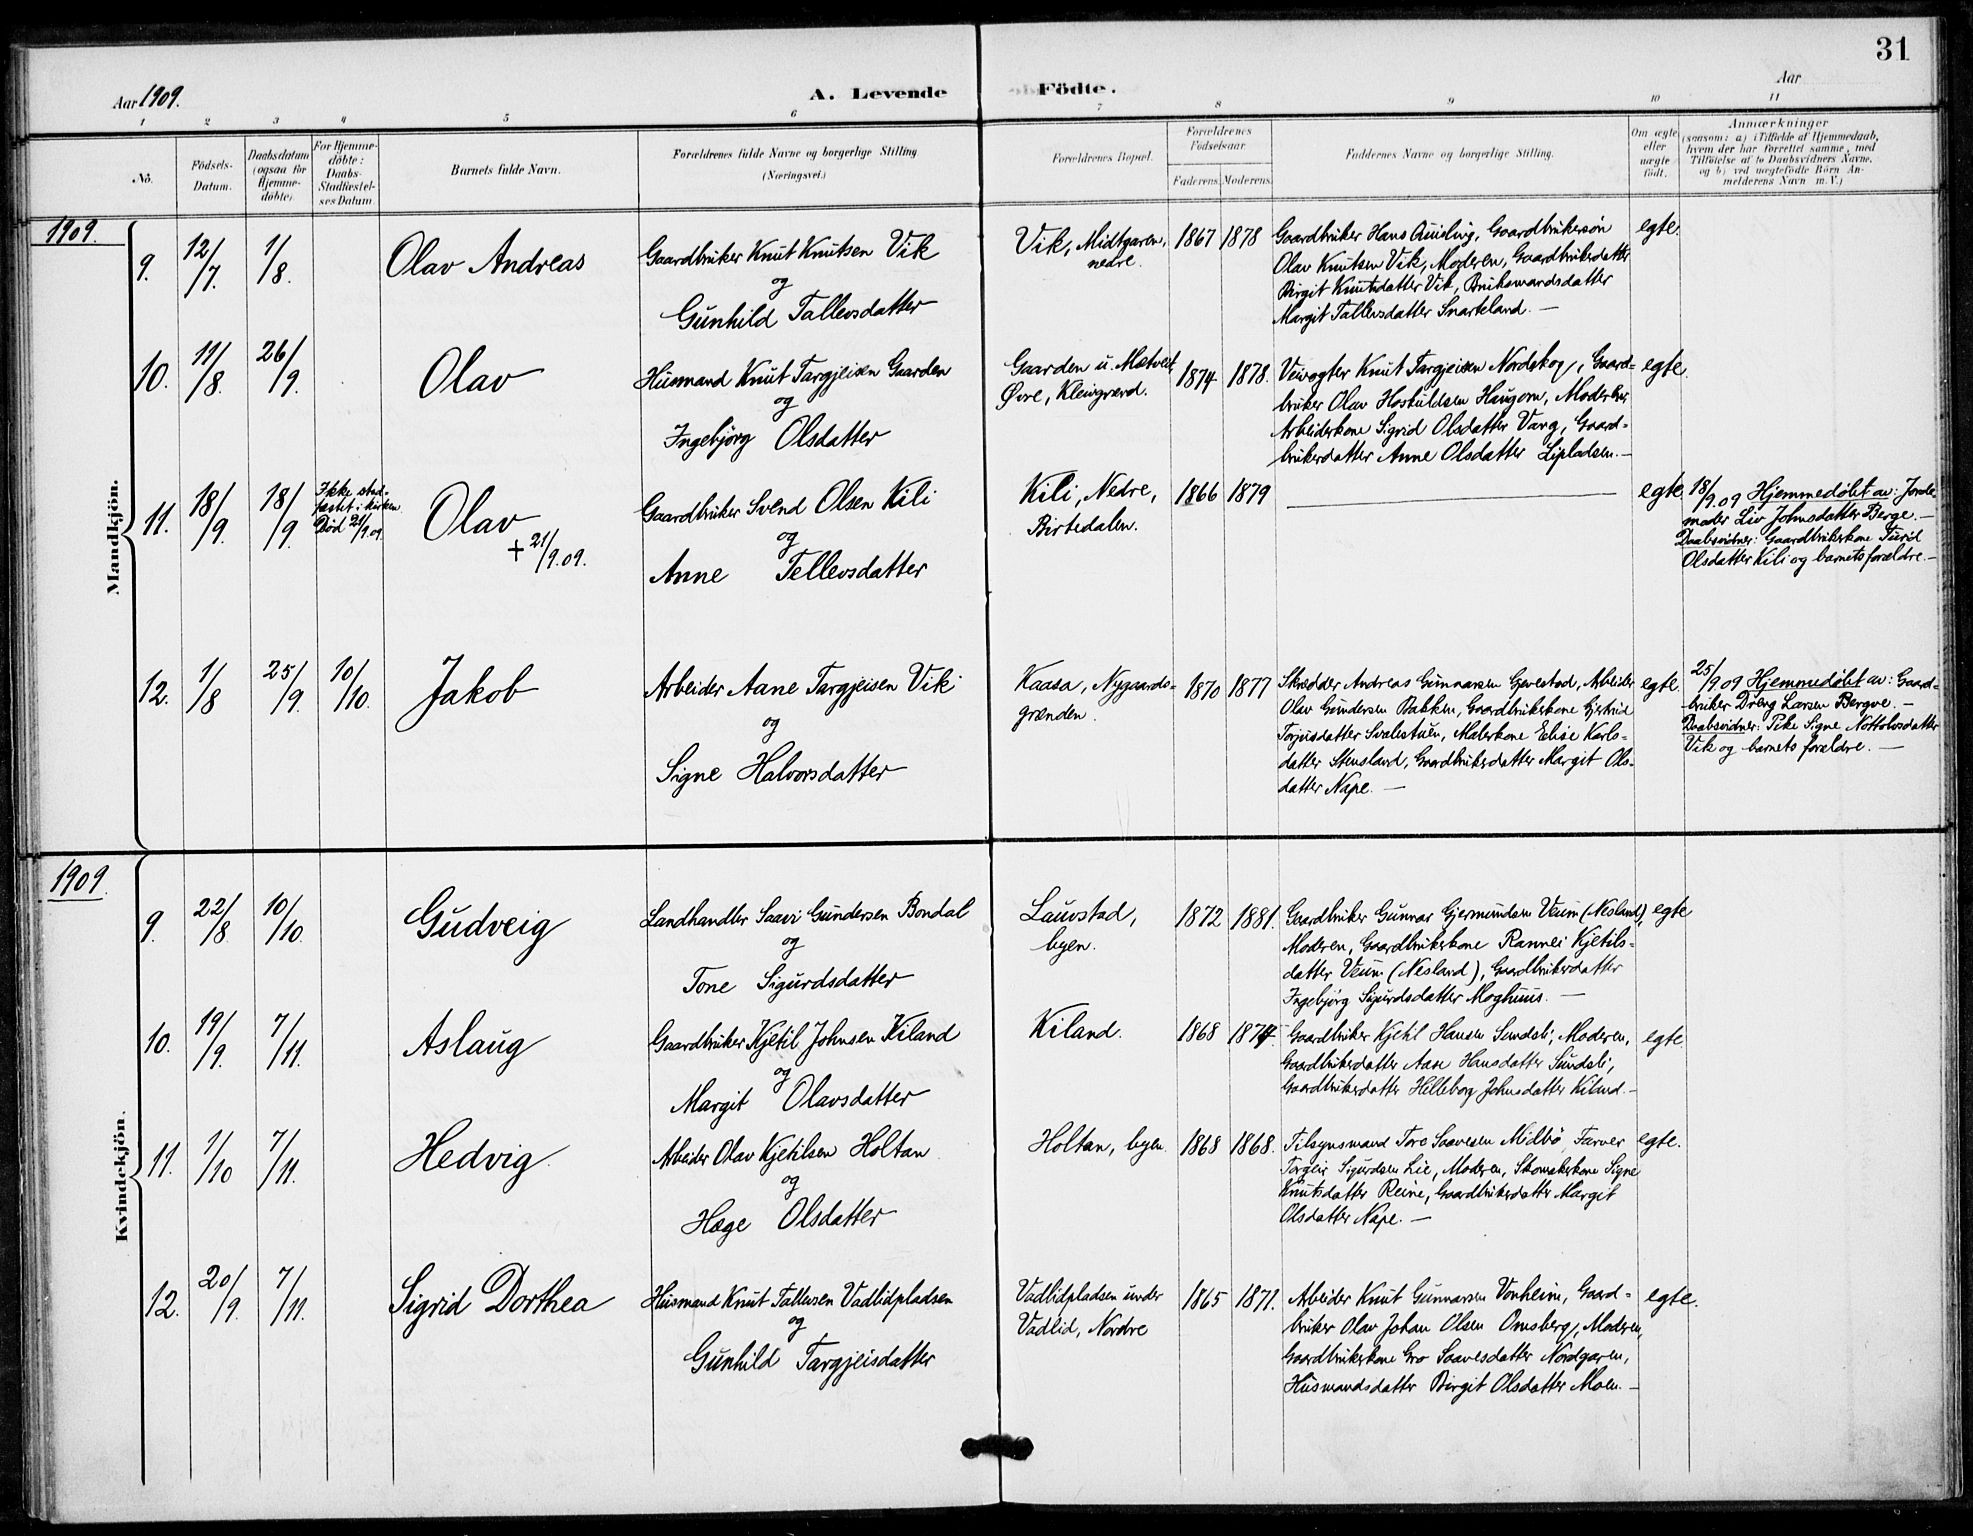 31
Aar 1909.
A. Levende
Födte.
Aar
1 2 3 4 5 6 7 8 9 10 11
No.
Födsels-
Datum.
Daabsdatum
(ogsaa for
Hjemme-
døbte).
For Hjemme-
døbte:
Daabs-
Stadfæstel-
ses Datum.
Barnets fulde Navn.
Forældrenes fulde Navne og borgerlige Stilling
(Næringsvei.)
Forældrenes Bopæl.
Forældrenes
Födselsaar.
Faderens.
Moderens.
Faddernes Navne og borgerlige Stilling.
Om ægte
eller
uægte
født.
Anmærkninger
(saasom: a) i Tilfælde af Hjemmedaab,
hvem der har forrettet samme, med
Tilföielse af to Daabsvidners Navne,
og b) ved uægtefödte Börn An-
melderens Navn m. V.)
1909.
Mandkjön.
9. 12/7. 1/8. Olav Andreas
Gaardbruker Knut Knutsen Vik
og
Gunhild Tallevsdatter
Vik, Midtgaren,
nedre.
1867 1878
Gaardbruker Hans Quisling, Gaardbrukersøn
Olav Knutsen Vik, Moderen, Gaardbrukerdatter
Birgit Knutsdatter Vik, Bruksmandsdatter
Margit Tallevsdatter Snarteland. —
egte.
10. 11/8. 26/9. Olav
Husmand Knut Targjeisen Gaarden
og
Ingebjørg Olsdatter
Gaarden u. Mætveit
Øvre, Kleivgrend.
1874 1878.
Veivogter Knut Targjeisen Nordskog, Gaard-
bruker Olav Hoskuldsen Haugom, Moderen,
Arbeiderkone Sigrid Olsdatter Varg, Gaard-
brukerdatter Anne Olsdatter Lipladsen. —
egte.
11. 18/9. 18/9. Ikke stad-
fæstet i kirken
Død 21/9.09.
Olav
+ 21/9.09.
Gaardbruker Svend Olsen Kili
og
Anne Tellevsdatter
Kili, Nedre,
Birtedalen.
1866 1879
egte
18/9.09 Hjemmedøbt av: Jorde-
moder Liv Johnsdatter Berge. —
Daabsvidner: Gaardbrukerkone Turid
Olsdatter Kili og barnets forældre. —
12. 1/8 25/9. 10/10. Jakob
Arbeider Aane Targjeisen Vik
og
Signe Halvorsdatter
Kaasa, Nygaards-
grænden.
1870 1877
Skrædder Andreas Gunnarsen Gjevestad, Arbeider
Olav Gundersen Bakken, Gaardbrukerkone Gjertrud
Torjusdatter Svalestuen, Malerkone Elise Karls-
datter Stensland, Gaardbrukerdatter Margit Ols-
datter Nape. —
egte.
25/9.09 Hjemmedøbt av: Gaard-
bruker Dreng Larsen Bergve. —
Daabsvidner: Pike Signe Nottolvsdatter
Vik og barnets forældre. —
1909.
Kvindekjön.
9. 22/8. 10/10. Gudveig
Landhandler Saavi Gundersen Bondal
og
Tone Sigurdsdatter
Lauvstad,
byen.
1872 1881.
Gaardbruker Gunnar Gjermundsen Veum (Nesland),
Moderen, Gaardbrukerkone Rannei Kjetils-
datter Veum (Nesland), Gaardbrukerdatter
Ingebjørg Sigurdsdatter Moghuus. —
egte
10. 19/9. 7/11. Aslaug
Gaardbruker Kjetil Johnsen Kiland
og
Margit Olavsdatter
Kiland.
1868 1874
Gaardbruker Kjetil Hansen Sundsli, Moderen,
Gaardbrukerdatter Aase Hansdatter Sundsli,
Gaardbrukerdatter Hilleborg Johnsdatter Kiland. —
egte.
11. 1/10 7/11. Hedvig
Arbeider Olav Kjetilsen Holtan
og
Hæge Olsdatter
Holtan, byen.
1868 1868.
Tilsynsmand Tore Saavesen Midbø, Farver
Torgeir Sigurdsen Lie, Moderen, Skomakerkone Signe
Knutsdatter Reine, Gaardbrukerdatter Margit
Olsdatter Nape. —
egte.
12. 20/9. 7/11. Sigrid Dorthea
Husmand Knut Tallevsen Vadlidpladsen
og
Gunhild Targjeisdatter
Vadlidpladsen under
Vadlid, Nordre
1865 1871.
Arbeider Knut Gunnarsen Vonheim, Gaard-
bruker Olav Johan Olsen Omsberg, Moderen,
Gaardbrukerkone Gro Saavesdatter Nordgaren,
Husmandsdatter Birgit Olsdatter Moen. —
egte.